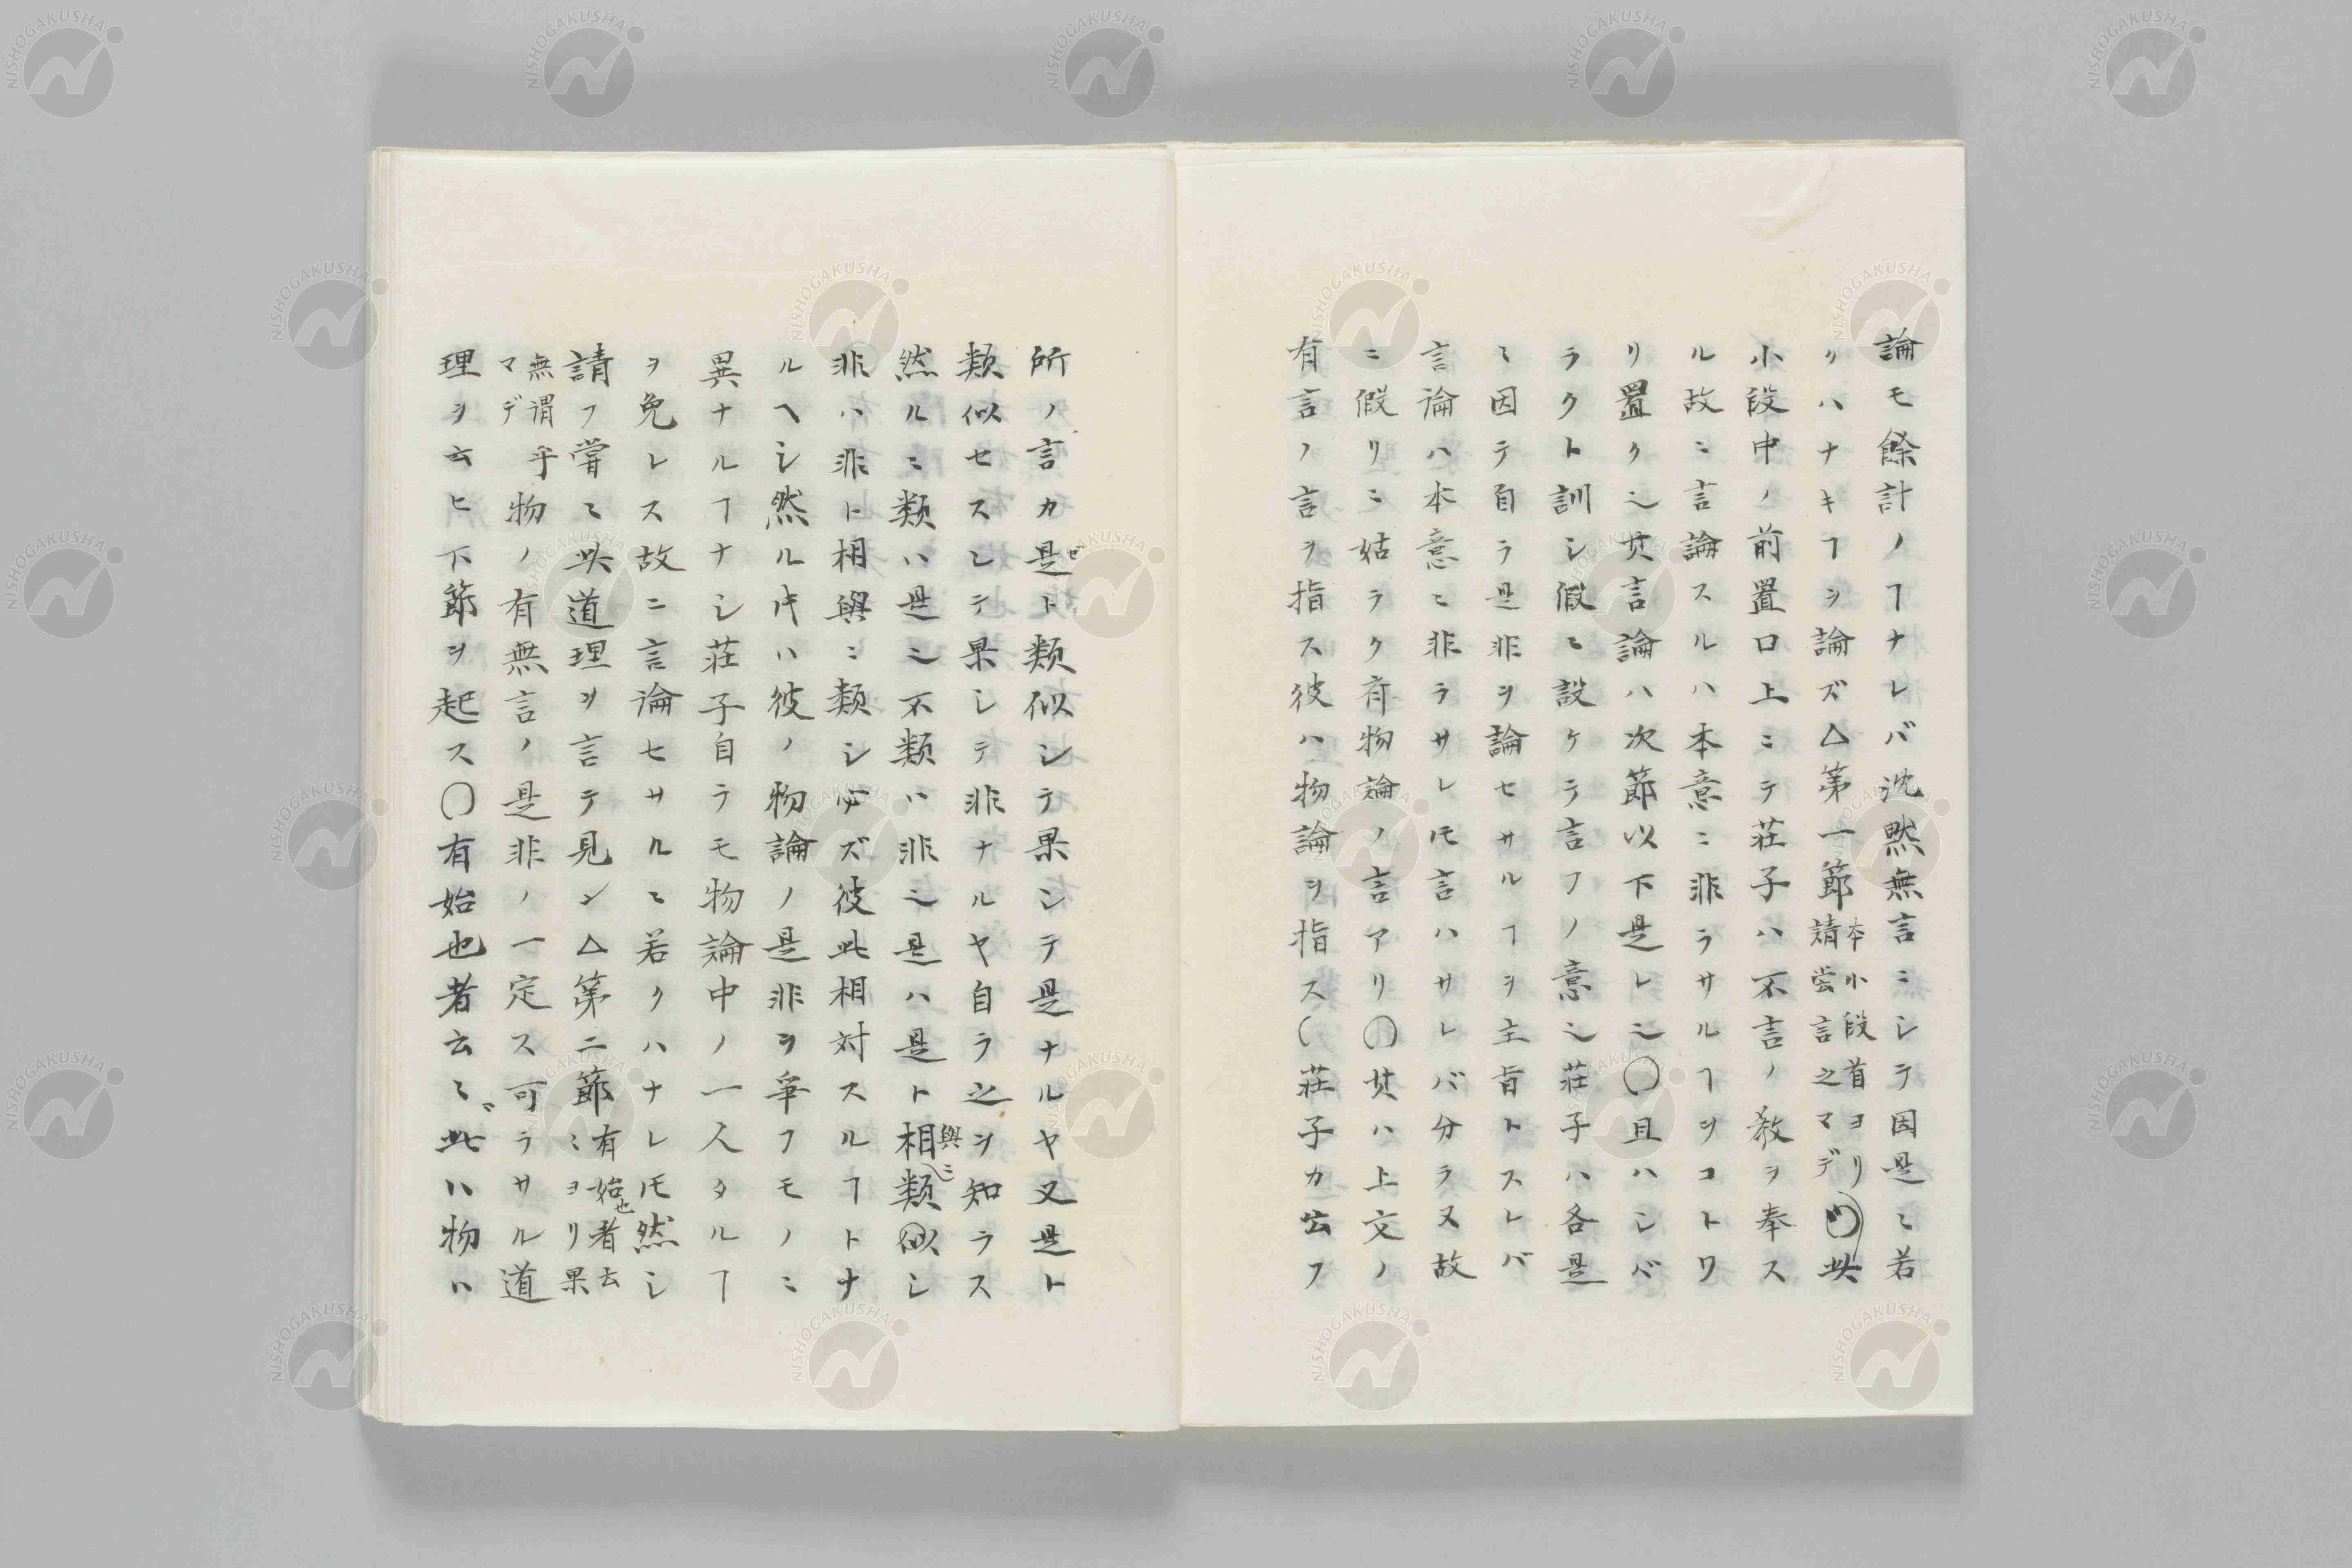 論モ餘計ノヿナレバ沈黙無言ニシテ因是ニ若
クハナキヿヲ論ズ△第一節本小段首ヨリ請嘗言之マデ〇此
小段中ノ前置口上ニテ荘子ハ不言ノ教ヲ奉ス
ル故ニ言論スルハ本意ニ非ラサルヿヲコトワ
リ置ク也其言論ハ次節以下是レ也〇且ハシバ
ラクト訓シ假ニ設ケテ言フノ意也荘子ハ各是
ニ因テ自ラ是非ヲ論セサルヿヲ主旨トスレバ
言論ハ本意ニ非ラサレ𪜈言ハサレバ分ラヌ故
ニ假リニ姑ラク斉物論ノ言アリ〇其ハ上文ノ
有言ノ言ヲ指ス彼ハ物論ヲ指ス(荘子カ云フ
所ノ言カ是ト類似シテ果シテ是ナルヤ又是ト
類似セスシテ果シテ非ナルヤ自ラ之ヲ知ラス
然ルニ類ハ是也不類ハ非也是ハ是ト相與ニ類シ
非ハ非ト相與ニ類シ必ズ彼此相対スルヿトナ
ルヘシ然ル片ハ彼ノ物論ノ是非ヲ爭フモノニ
異ナルヿナシ荘子自ラモ物論中ノ一人タルヿ
ヲ免レス故ニ言論セサルニ若クハナレ𪜈然シ
請フ嘗ミニ此道理ヲ言テ見ン△第二節有始也者云〻ヨリ果
無謂乎マデ物ノ有無言ノ是非ノ一定ス可ラサル道
理ヲ云ヒ下節ヲ起ス〇有始也者云〻此ハ物ハ